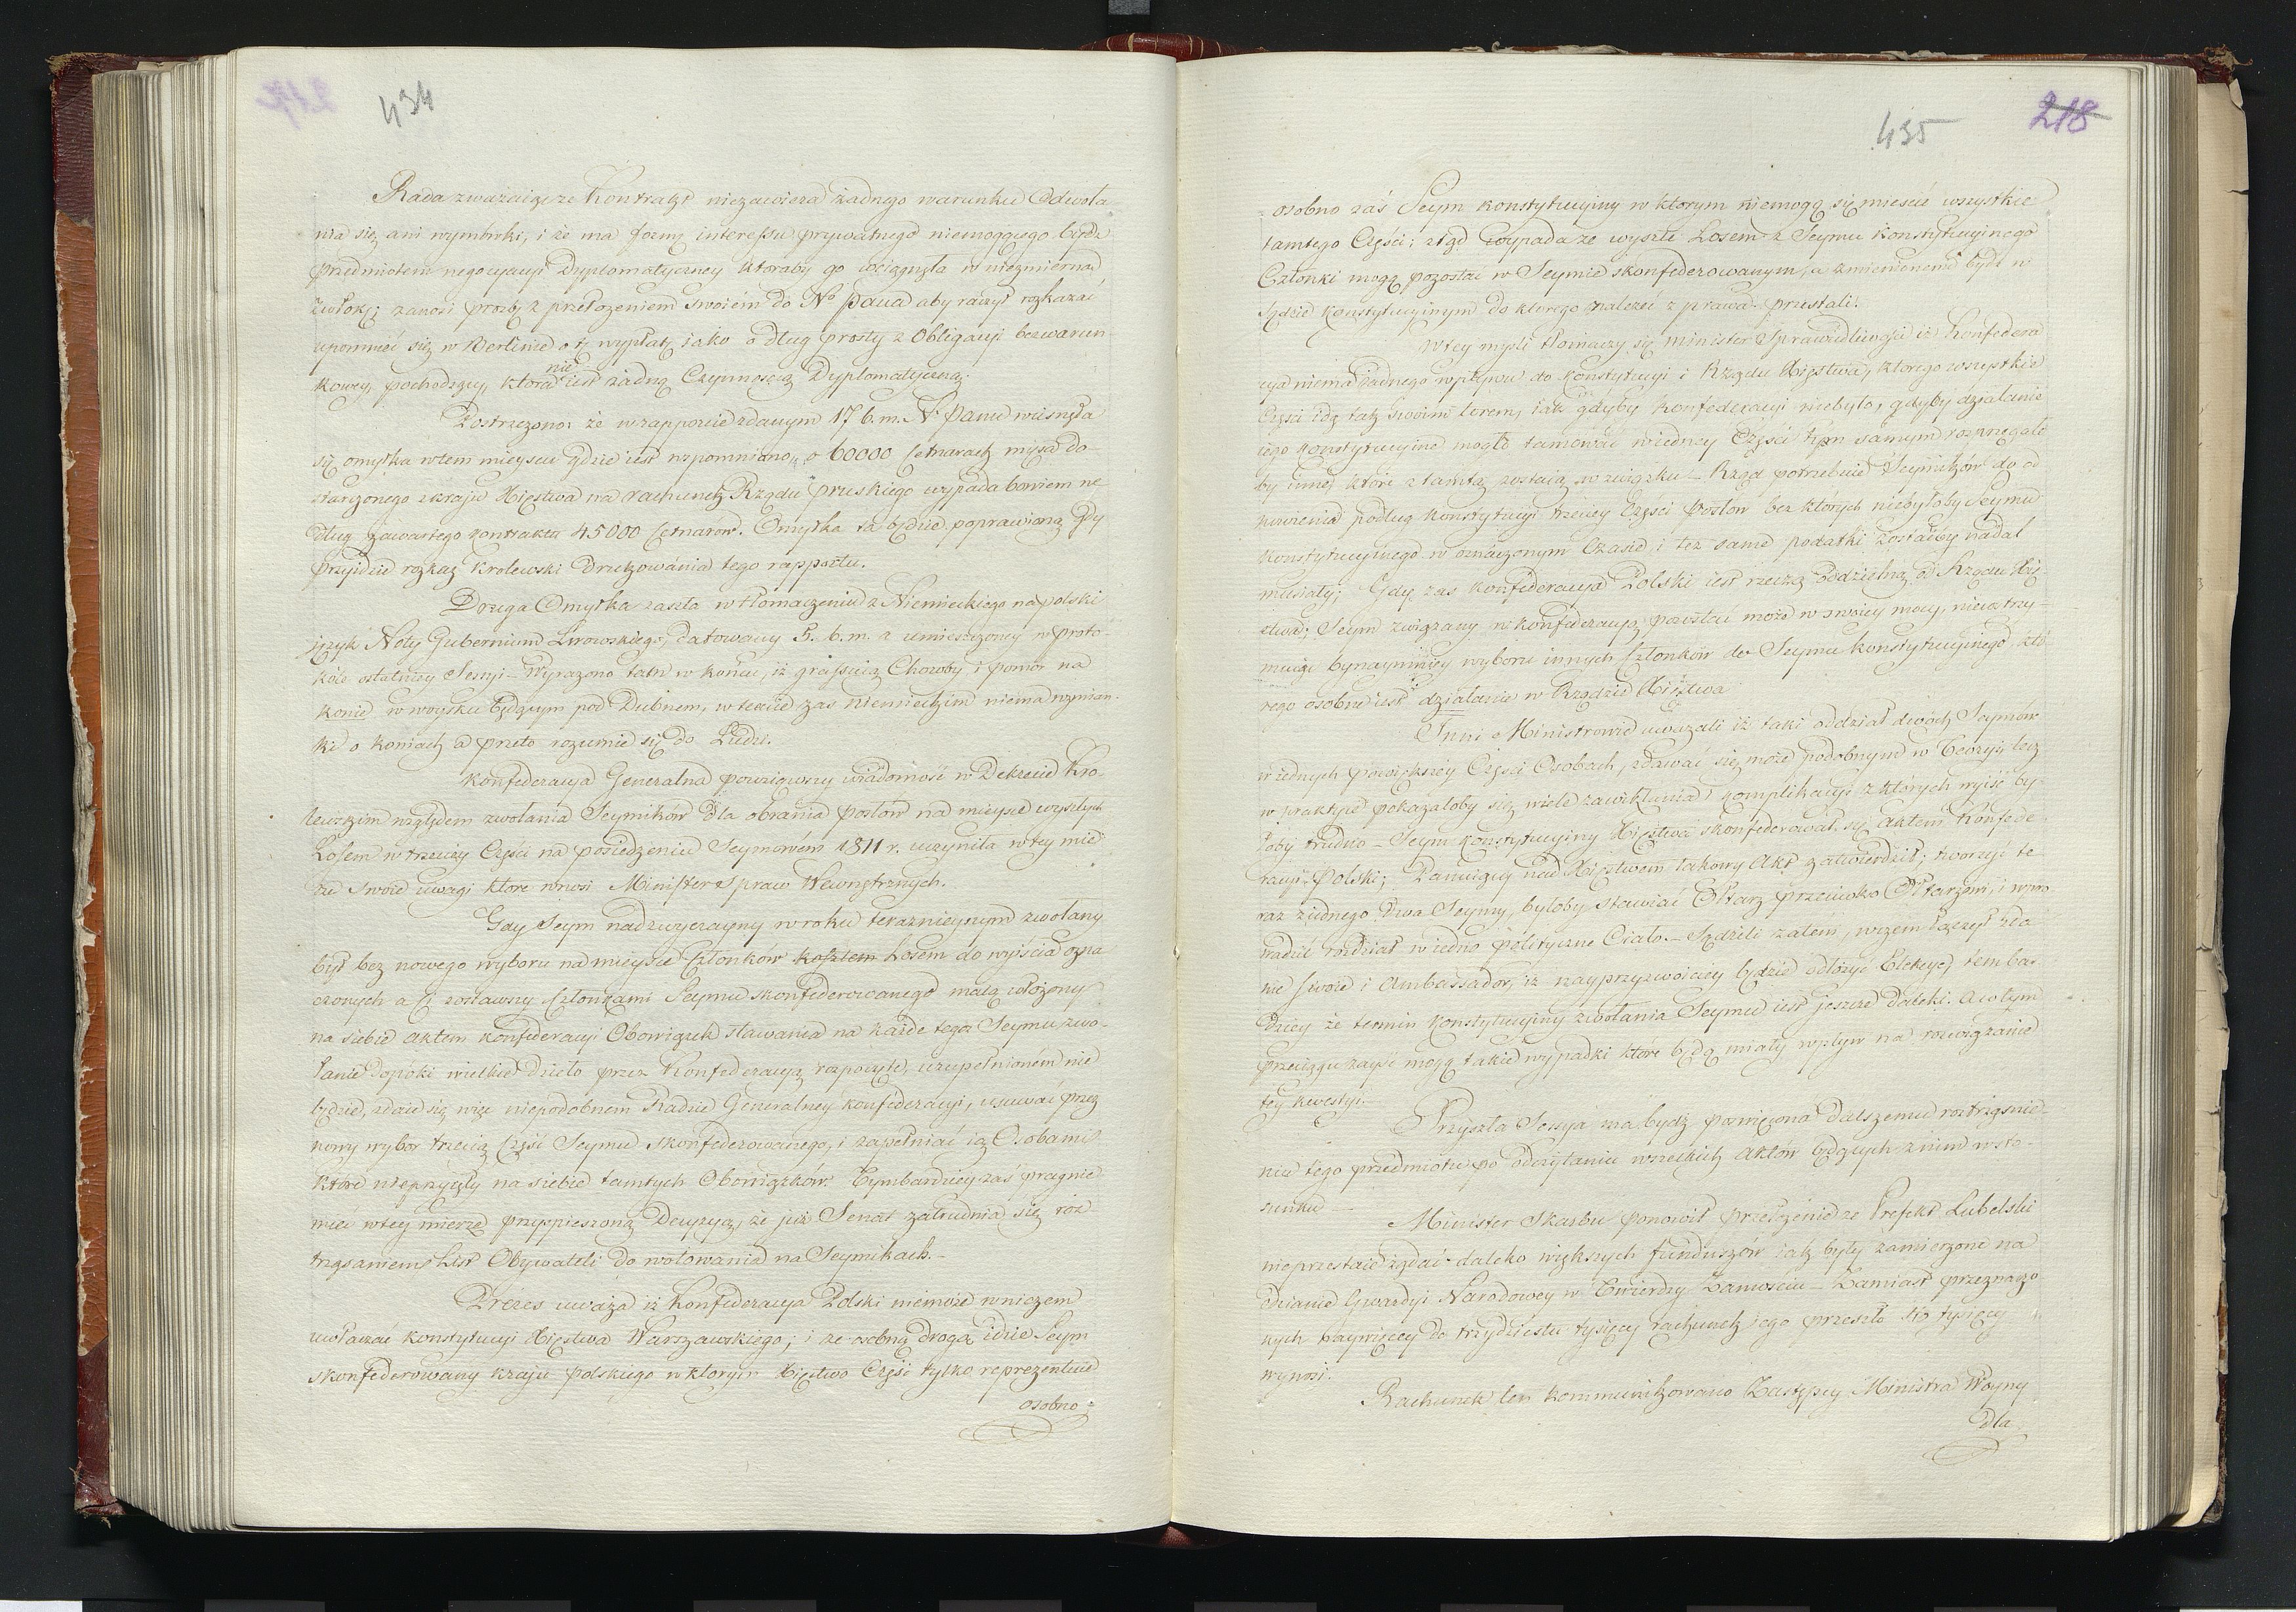 434
Rada zważaiąc ze Kontrakt niezawiera żadnego warunku Odwoła
nia się ani wymówki, i że ma formę interessu prywatnego niemogącego bydź
przedmiotem negocyacyi Dyplomatyczney ktoraby go wciągnęła w niezmierną
zwłokę; zanosi prozbę z przełożeniem swoiém do No Pana aby raczył rozkazać
upomnieć się w Berlinie o tę wypłatę iako o dług prosty z Obligacyi bezwarun
kowey pochodzący, ktora nie iest żadną Czynnością Dyplomatyczną.
Postrzeżono: że w rapporcie zdanym 17 b. m. N. Panu wcisnęła
się omyłka w tem mieyscu gdzie iest wspomniano o 60000 Cetnarach mięsa do-
starczonego z kraju Xięstwa na rachunek Rządu pruskiego wypada bowiem we
dług zawartego kontraktu 45000 Cetnarów. Omyłka ta będzie poprawioną gdy
przyidzie rozkaz Krolewski Drukowánia tego rapportu.
Druga Omyłka zaszła w tłomaczeniu z Niemieckiego na polski
język Noty Gubernium Lwowskiego, datowaney 5. b. m. a umieszczoney w proto-
kóle ostatniey Sessyi - Wyrażono tam w końcu, iż grassuią Choroby i pomór na
konie w woysku będącym pod Dubnem, w texcie zas niemieckim niema wzmian-
ki o koniach a przeto rozumie się do Ludzi.
Konfederacya Generalna powziąwszy wiadomość w Dekrecie Kro-
lewskim względem zwołania Seymików dla obrania posłów na mieysce wyszłych
Losem w trzeciey Części na posiedzeniu Seymowém 1811 r. uczyniła w tey mie
rze swoie uwagi ktore wnosi Minister spraw Wewnętrznych.
Gdy Seym nadzwyczayny w roku teraznieyszym zwołany
był bez nowego wyboru na mieysce Członków kosztem Losem do wyiścia ozna
czonych a Ci zostawszy Członkami Seymu skonfederowanego maią włożony
na siebie Aktem konfederacyi Obowiązek stawania na każde tegoż Seymu zwo-
łanie dopóki wielkie dzieło przez Konfederacyą rozpoczęte, uzupełnioném nie
będzie, zdaie się więc niepodobnem Radzie Generalney konfederacyi, usuwać przez
nowy wybor trzecią Część Seymu skonfederowanego, i zapełniać ią Osobami
które nieprzyięły na siebie tamtych Obowiązków. Tymbardziey zaś pragnie
mieć w tey mierze przyspieszoną Decyzyą, że już Senat zatrudnia się roz
trząsaniem List Obywateli do wotowania na Seymikach.-
Prezes uważa iż Konfederacya Polski niemoże w niczem
uwłaczać konstytucyi Xięstwa Warszawskiego; i że osobną drogą idzie Seym
skonfederowany kraju polskiego w ktorym Xięstwo Część tylko reprezentuie
osobno
435
218
osobno zaś Seym konstytucyiny w ktorym niemogą się mieścić wszystkie
tamtego Części; ztąd wypada że wyszłe Losem z Seymu konstytucyinego
Członki mogą pozostać w Seymie skonfederowanym, a zmienionemi bydź w
Sądzie konstytucyinym do ktorego należeć z prawa przestali.
W tey myśli tłomaczy się minister Sprawiedliwości iż Konfedera
cya niema żadnego wpływu do konstytucyi i Rządu Xięstwa, ktorego wszystkie
Części idą tak swoim torem, iak gdyby konfederacyi niebyło, gdyby działanie
iego konstytucyine mogło tamować w iedney Części tym samym rozprzęgało
by inne które z tamtą zostaią w związku - Rząd potrzebuie Seymików do od
nowienia podług konstytucyi trzeciey Części posłow bez których niebyłoby Seymu
konstytucyinego w oznaczonym Czasie, i też same podatki zostaćby nadal
musiały; Gdy zas konfederacya Polski iest rzeczą oddzielną od Rządu Xię-
stwa; Seym związany w konfederacyą pozostać może w swoiey mocy, niewstrzy-
muiąc bynaymniey wyboru innych Członków do Seymu konstytucyinego, któ
rego osobne iest działanie w Rządzie Xięstwa
Inni Ministrowie uważali iż taki oddział dwóch Seymów
w iednych powiększey Części Osobach, zdawać się może podobnym w Teoryi, lecz
w praktyce pokazałoby się wiele zawikłania i komplikacyi z których wyiść by
łoby trudno - Seym konstytucyiny Xięstwa skonfederował się Aktem Konfede
racyi Polski; Panuiący nad Xięstwem takowy Akt zatwierdził; tworzyć te
raz z iednego Dwa Seymy, byłoby stawiać Ołtarz przeciwko Ołtarzowi, i wpro
wadzić rozdział w iedno polityczne Ciało. - Sądzili zatem, w czem łączył zda
nie swoie i Ambassador, iż nayprzyzwoiciey będzie odłożyć Elekcye, tém bar
dziey że termin konstytucyiny zwołania Seymu iest jeszcze daleki. a w tym
przeciągu zayść mogą takie wypadki które będą miały wpływ na rozwiązanie
téy kwestyi.
Przyszła Sessya ma bydź poświęcona dalszemu roztrząśnie-
niu tego przedmiotu po odczytaniu wszelkich Aktów będących z nim w sto-
sunku -
Minister Skarbu ponowił przełożenie ze Prefekt Lubelski
nieprzestaie żądać daleko większych funduszów iak były zamierzone na
odzianie Gwardyi Narodowey w Twierdzy Zamosciu - Zamiast przeznaczo
nych naywięcey do trzydziestu tysięcy rachunek iego przeszło sto tysięcy
wynosi.
Rachunek ten kommunikowano Zastępcy Ministra Woyny
dla